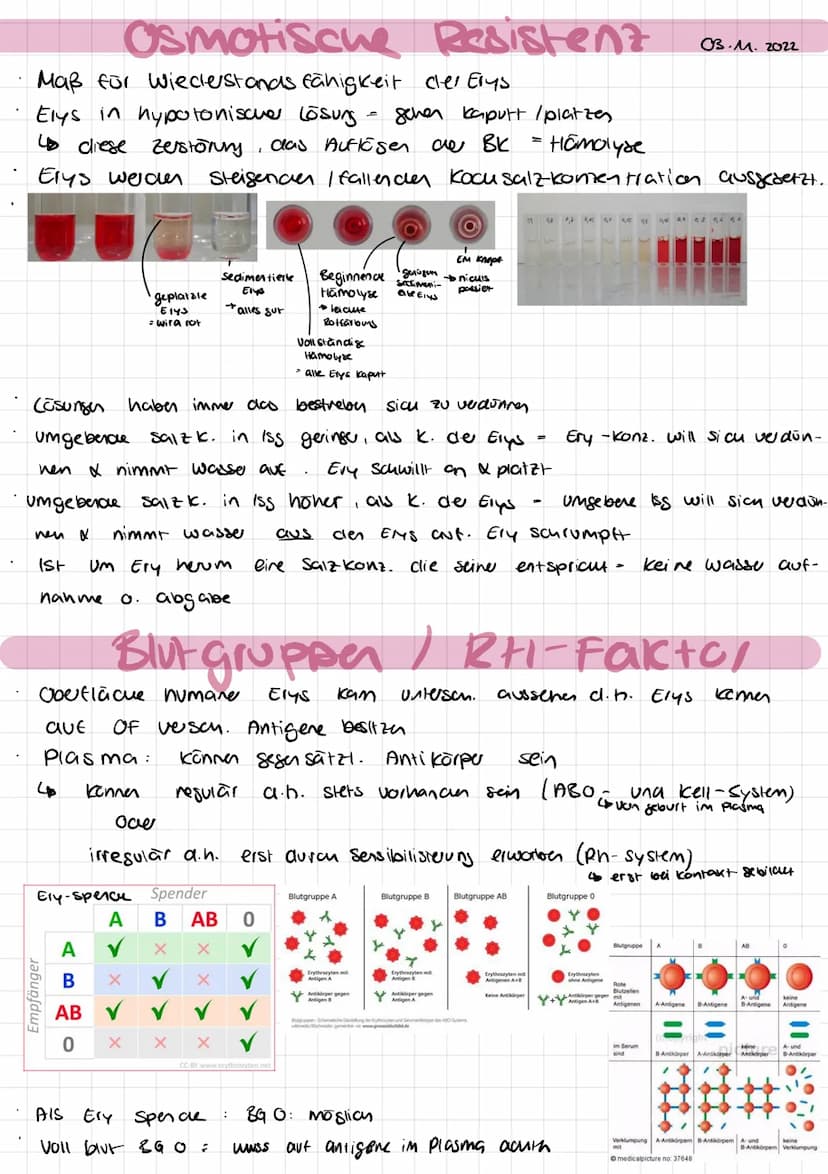 Osmotische Resistenz
03.11.2022
· Maß für Wiederstandsfähigkeit der Erys
· Erys in hypotonischer Lösung = gehen kaputt/platzen
↳ diese Zerstörung, das Auflösen der BK = Hämolyse
· Erys werden steigender/fallender Kochsalzkonzentration ausgesetzt.
geplatzte
Erys
= wird rot
Sedimentierte
Erys
→ alles gut
Beginnende
Hämolyse
→ leichte
Rotfärbung
Vollständige
Hämolyse
= alle Erys kaputt
→ nichts
passiert
· Lösungen haben immer das bestreben sich zu verdünnen
· umgebende Salzk. in lsg geringer, als K. der Erys = Ery-Konz. will sich verdün-
nen & nimmt Wasser auf. Ery schwillt an & platzt
· umgebende Salzk. in lsg höher, als K. der Erys = umgebene lsg will sich verdün-
nen & nimmt wasser aus den Erys auf. Ery schrumpft
· Ist um Ery herum eine Salzkonz. die seiner entspricht = keine Wasser auf-
nahme o. abgabe
Blutgruppen / RH-Faktor
· Oberfläche humaner Erys kann untersch. aussehen d.h. Erys können
auf OF versch. Antigene besitzen
· Plasma: können gegensätzl. Antikörper sein
↳ können regulär d.h. stets vorhanden sein (ABO- und Kell-System)
↳ von geburt im Plasma
Oder
irregulär d.h. erst durch Sensibilisierung erworben (Rh-System)
↳ erst bei Kontakt gebildet
Ery-spende
Spender
A B AB 0
Empfänger
A
B
AB
0
CC BY www.erythrozyten.net
Blutgruppe A
Erythrozyten mit
Antigen A
Antikörper gegen
Antigen B
Blutgruppe B
Erythrozyten mit
Antigen B
Antikörper gegen
Antigen A
Blutgruppe AB
Erythrozyten mit
Antigenen A+B
Keine Antikörper
Blutgruppe 0
Erythrozyten
ohne Antigene
Antikörper gegen
Antigen A+B
Blutgruppe A B AB 0
Rote
Blutzellen
mit
Antigenen
A-Antigene B-Antigene A- und
B-Antigene keine
Antigene
im Serum
sind
B-Antikörper A-Antikörper keine
Antikörper A- und
B-Antikörper
Verklumpung
mit
A-Antikörpern B-Antikörpern A- und
B-Antikörpern keine
Verklumpung
© medicalpicture no: 37648
· Als Ery Spende : BG O: möglich
· Voll blut BG O : muss auf antigene im Plasma achten